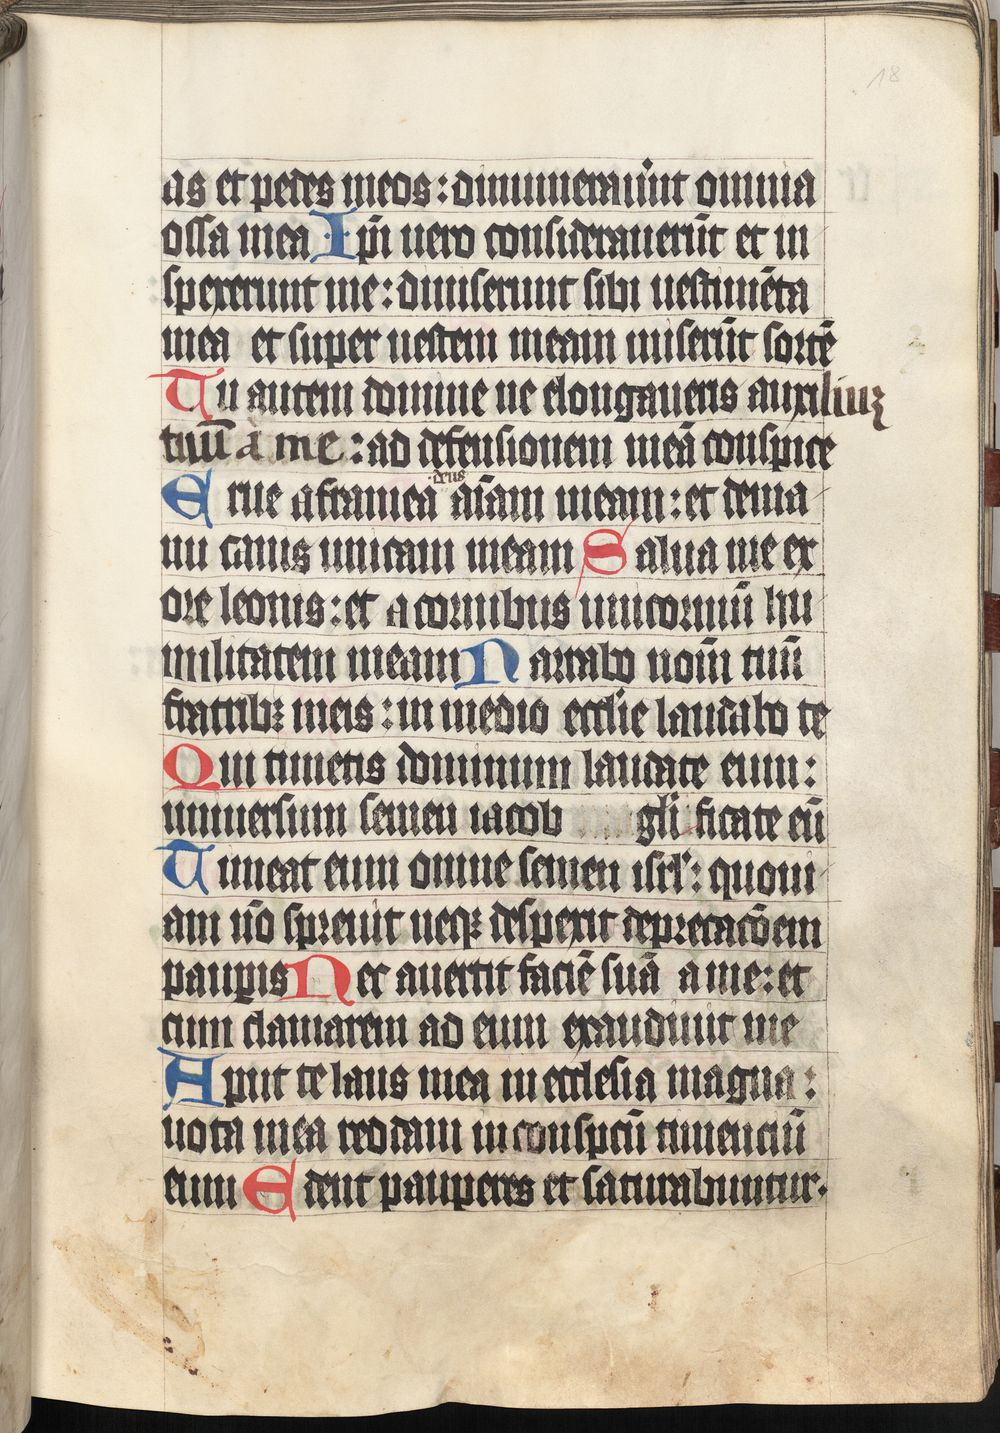 18
as et pedes meos: dinumeraue̅nt omnia
ossa mea Ip̅i uero considerauerūt et in
spexerunt me: diuiserunt sibi uestimēta
mea et super uestem meam miserūt sortē
Tu autem domine ne elongaueris auxiliuꝫ
tuū a me: ad defensionem meā conspice
deus
Erue a framea ai̅am meam: et de manu
canis unicam meam Salua me ex
ore leonis: et a cornibus unicorniū hu
militatem meam Narrabo nom̅ tuū
fratribꝫ meis: in medio eccl̅ie laudabo te
Qui timetis dominum laudate eum:
uniuersum semen iacob gl̅ificate eū
Timeat eum omne semen isrl̅: quoni
am nō spreuit neqꝫ despexit deprecacōem
paup̲is Nec auertit faciē suā a me: et
cum clamarem ad eum exaudiuit me
Aput te laus mea in ecclesia magna:
uota mea reddam in conspc̅u timenciū
eum Edent pauperes et saturabuntur.